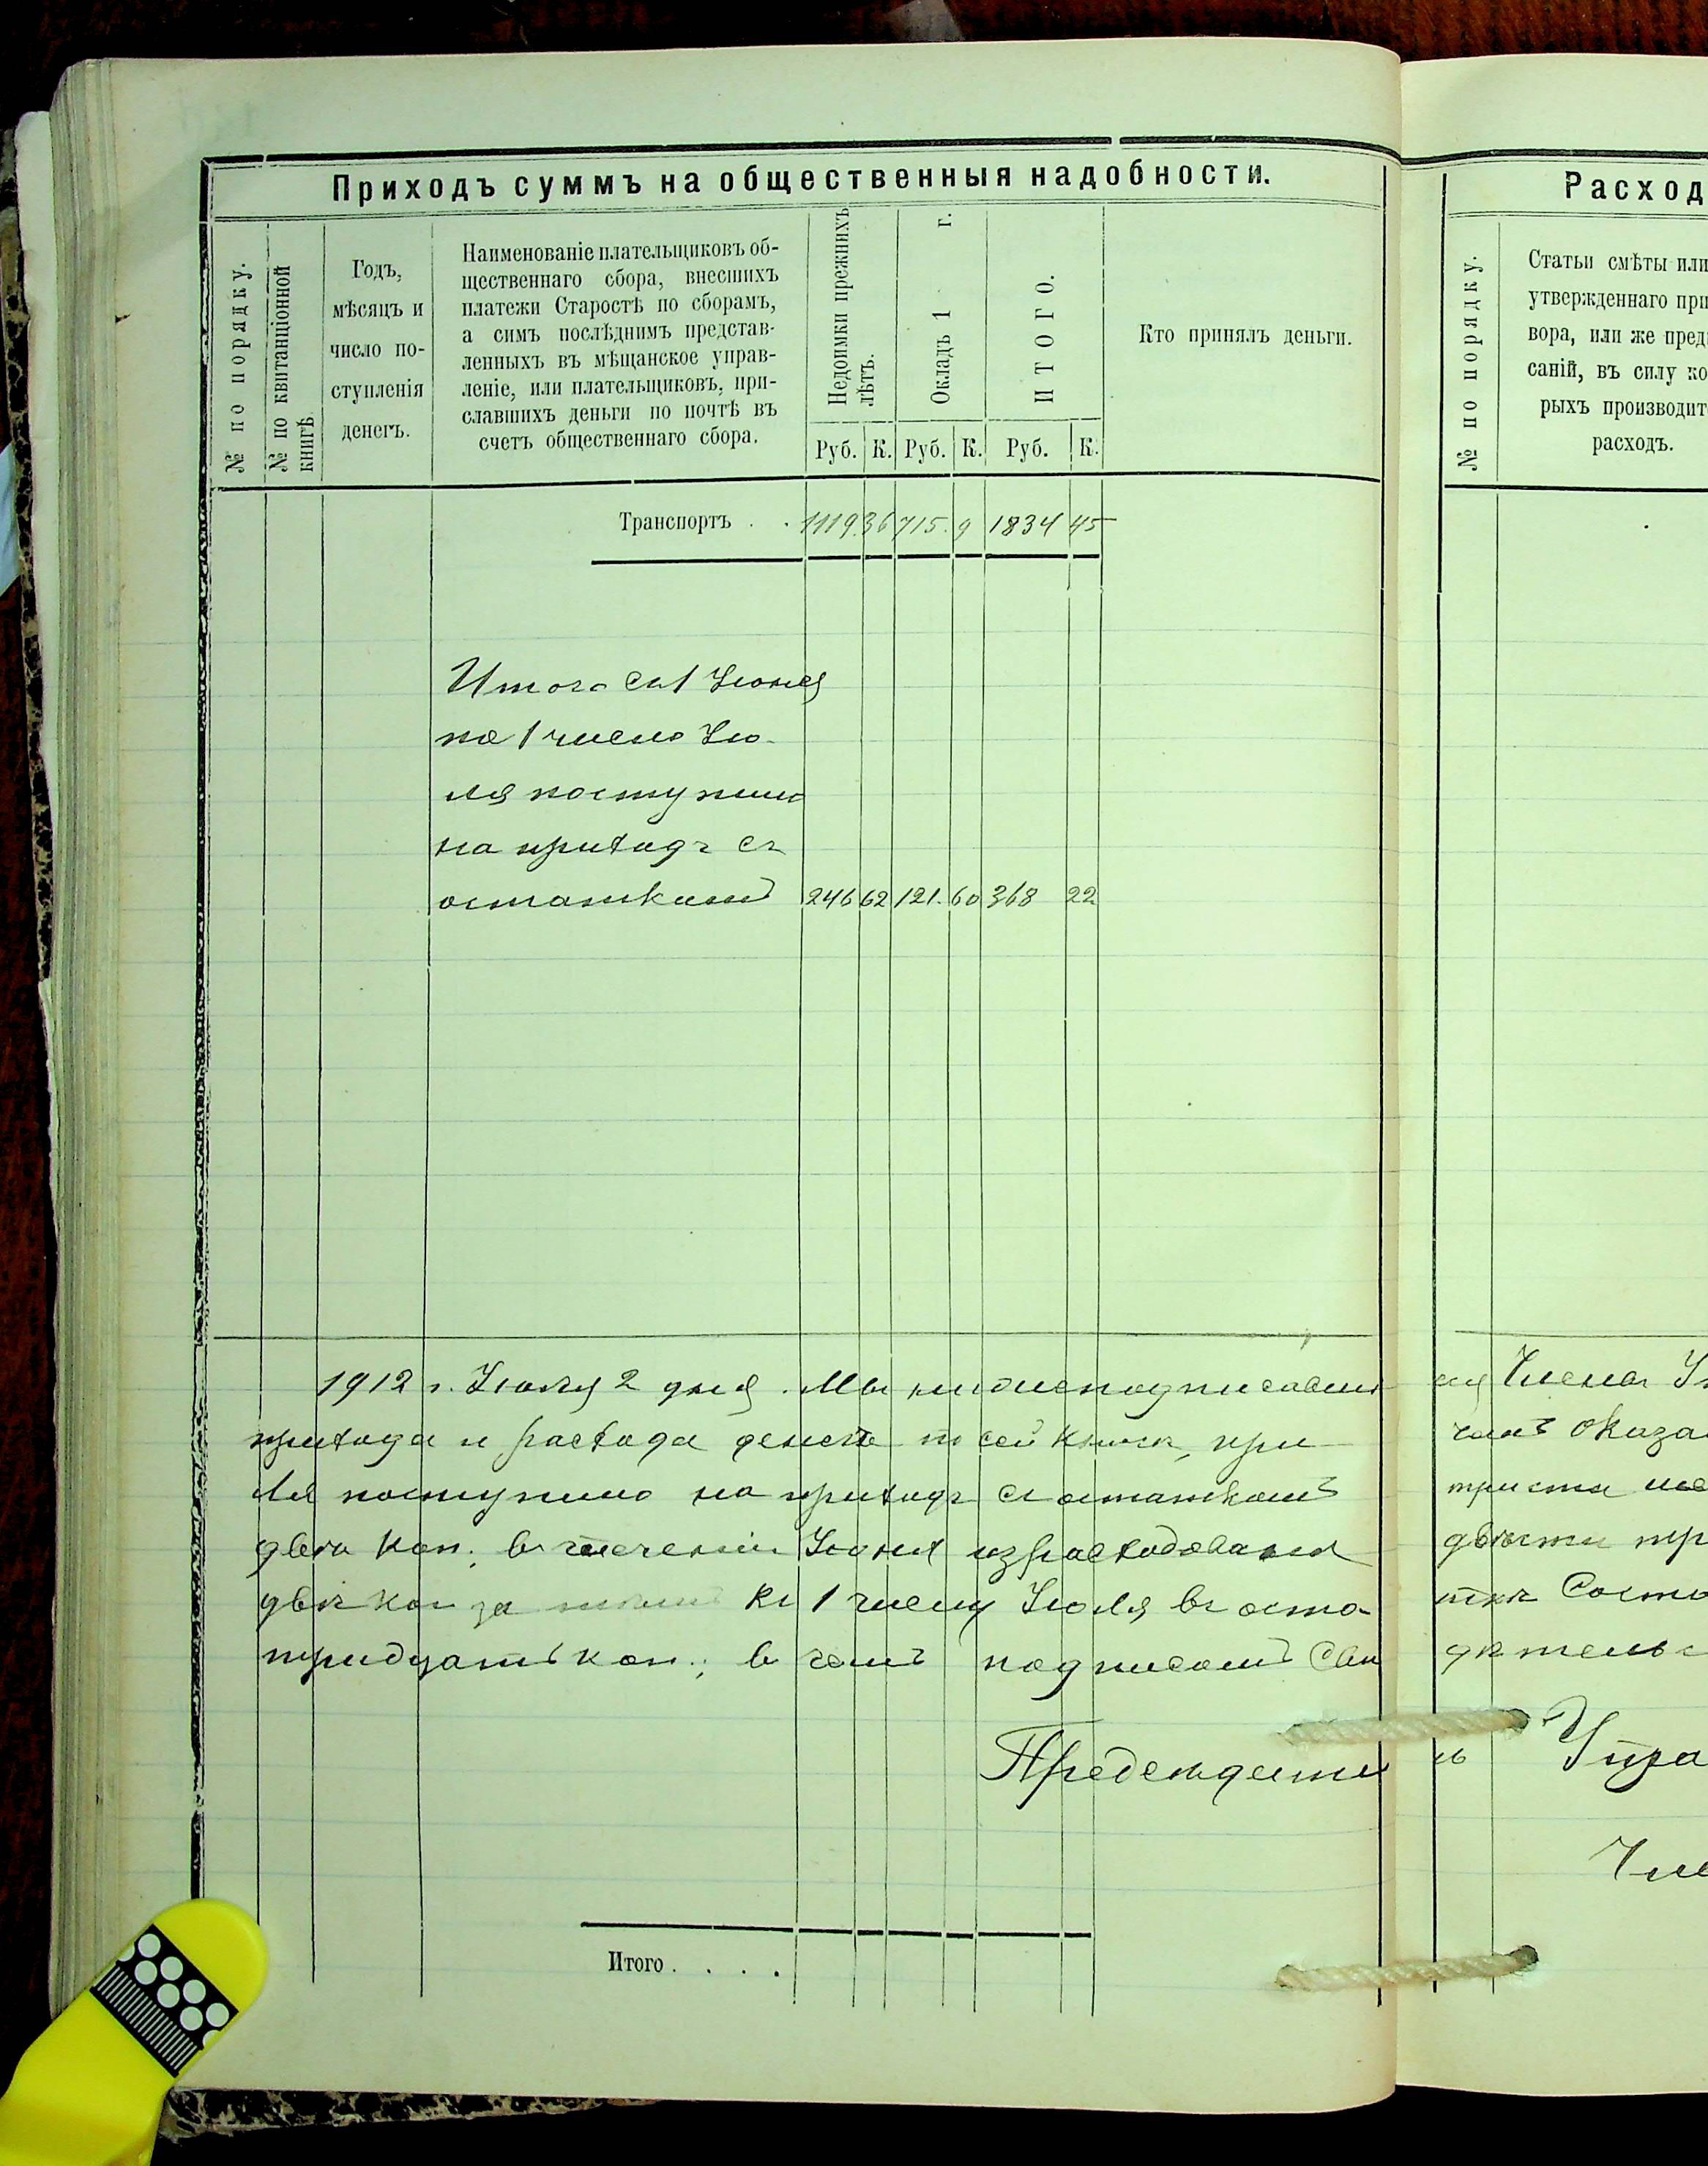 Приходъ суммъ на общественныя надобности.
№ по порядку.
№ по квитанціонной
книгѣ
Годъ,
мѣсяцъ и
число по-
ступленія
денегъ.
Наименованіе плательщиковъ об-
щественнаго сбора, внесшихъ
платежи Старостѣ по сборамъ,
а симъ послѣднимъ представ-
ленныхъ въ мѣщанское управ-
леніе, или плательщиковъ, при-
славшихъ деньги по почтѣ въ
счетъ общественнаго сбора.
Недоимки прежнихъ
лѣтъ.
Окладъ 1 г.
ИТОГО.
Руб. К. Руб. К. Руб. К.
Кто принялъ деньги.
Транспортъ . . 1119 36 715. 9 1834 45
Итого съ 1 Іюня
на 1 число Ію-
ля поступило
на приходъ съ
остаткомъ 246 62 121. 60 368 22
1912 г. Іюля 2 дня. Мы нижеподписавші
прихода и расхода денегъ по сей книгѣ, при
ля поступило на приходъ съ остаткомъ
двѣ коп. въ теченіи Іюня израсходовано
двѣ коп за къ 1 числу Іюля въ оста-
тридцать коп.; в чемъ подписомъ Сви
Предсѣдатель
Итого . . . .
Расход
№ по порядку.
Статьи смѣты или
утвержденнаго при
вора, или же пред
саній, въ силу ко
рыхъ производит
расходъ.
ся Члены У
чемъ оказа
триста ше
двѣсти тр
ткѣ Состо
дѣтельс
Упра
Чле